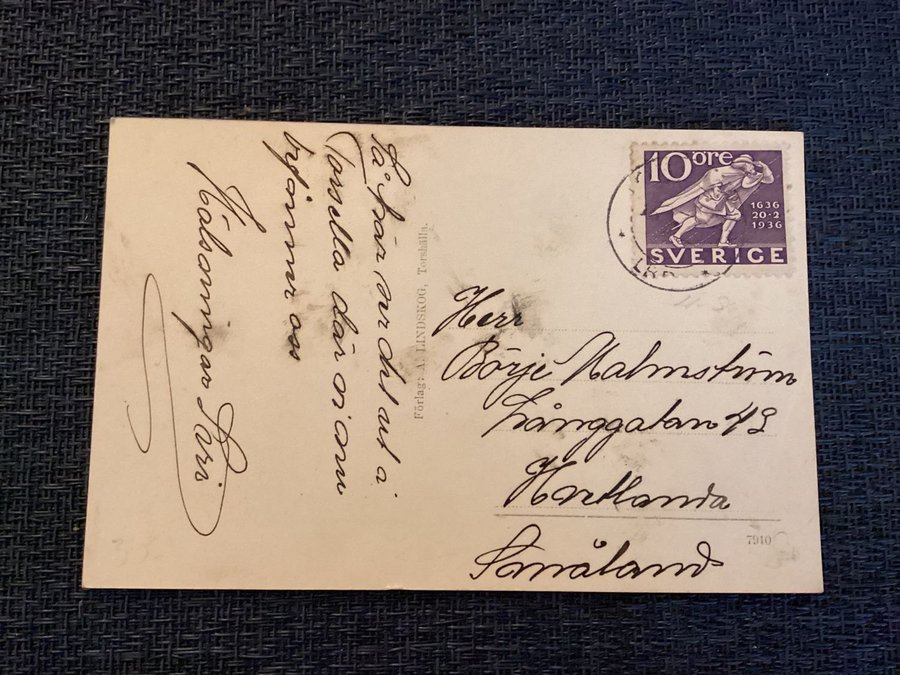 10 öre
1636
20·2
1936
SVERIGE
Så här ser det ut i
Torsella där vi om
oss
Hälsningar Siri
Förlag: A. LINDSKOG, Torshälla.
Herr
Börje Malmström
Långgatan 49
Hvetlanda
Småland
7910